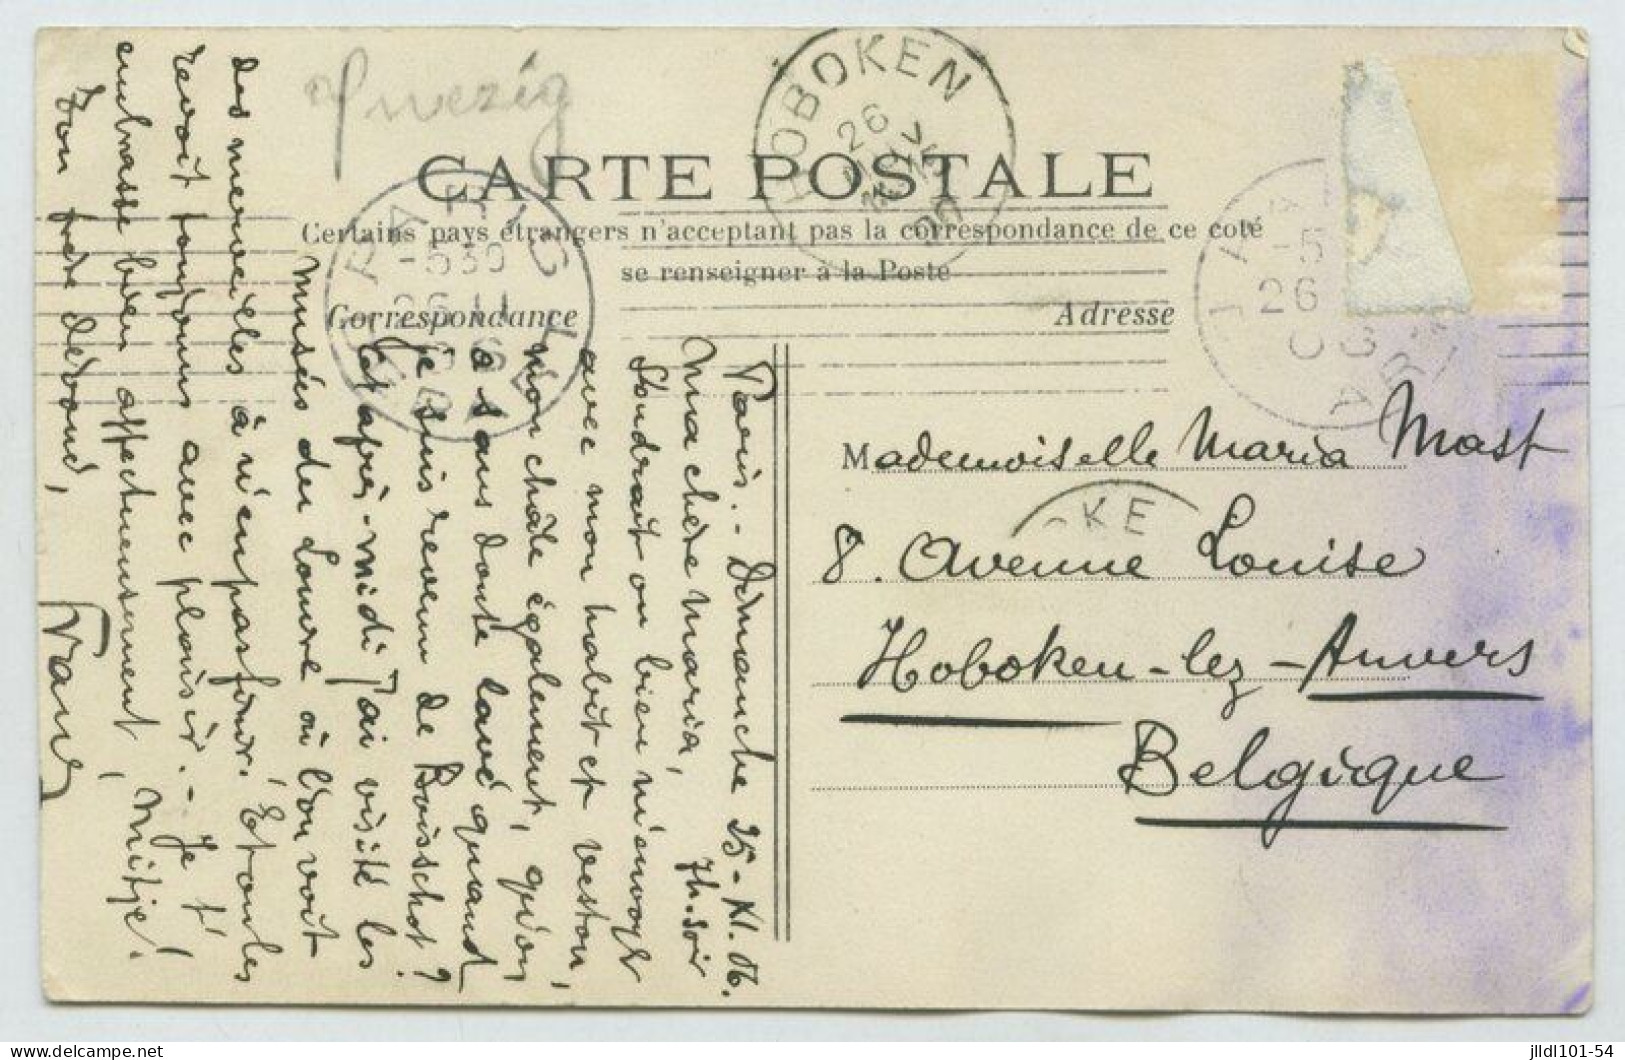 CARTE POSTALE
Certains pays étrangers n'acceptent pas la correspondance de ce coté
se renseigner à la Poste
Correspondance
Adresse
BOBOKEN
26
-5 30
26 11
-5
26
OKE
Paris. - Dimanche 25-XI.06.
7h. soir
Ma chère Maria,
Foudrait ou bien m'envoyer
avec mon habit et veston,
mon châle également, qu'on
a sans doute lavé quand
je suis revenu de Boisschot?
Cet après-midi j'ai visité les
Musées du Louvre où l'on voit
des merveilles à n'en pas finir. Et on les
revoit toujours avec plaisir. - Je t'
embrasse bien affectueusement, Mitje!
Ton frère dévoué,
Mademoiselle Maria Mast
8. Avenue Louise
Hoboken-lez-Anvers
Belgique
delcampe.net
jlldl101-54